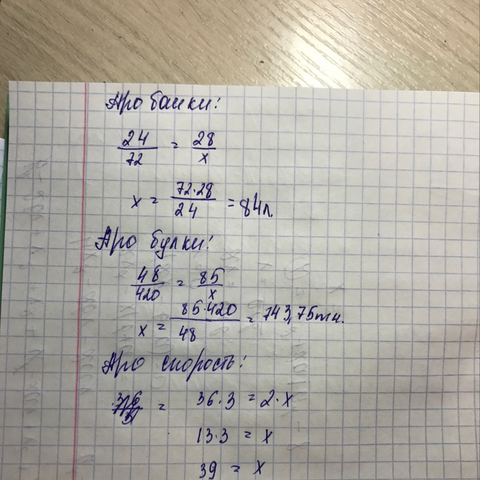 Про банки:
24/72 = 28/x
x = 72·28/24 = 84л.
Про булки:
48/420 = 85/x
x = 85·420/48 = 743,75тн.
Про скорость:
= 36·3 = 2·x
13·3 = x
39 = x